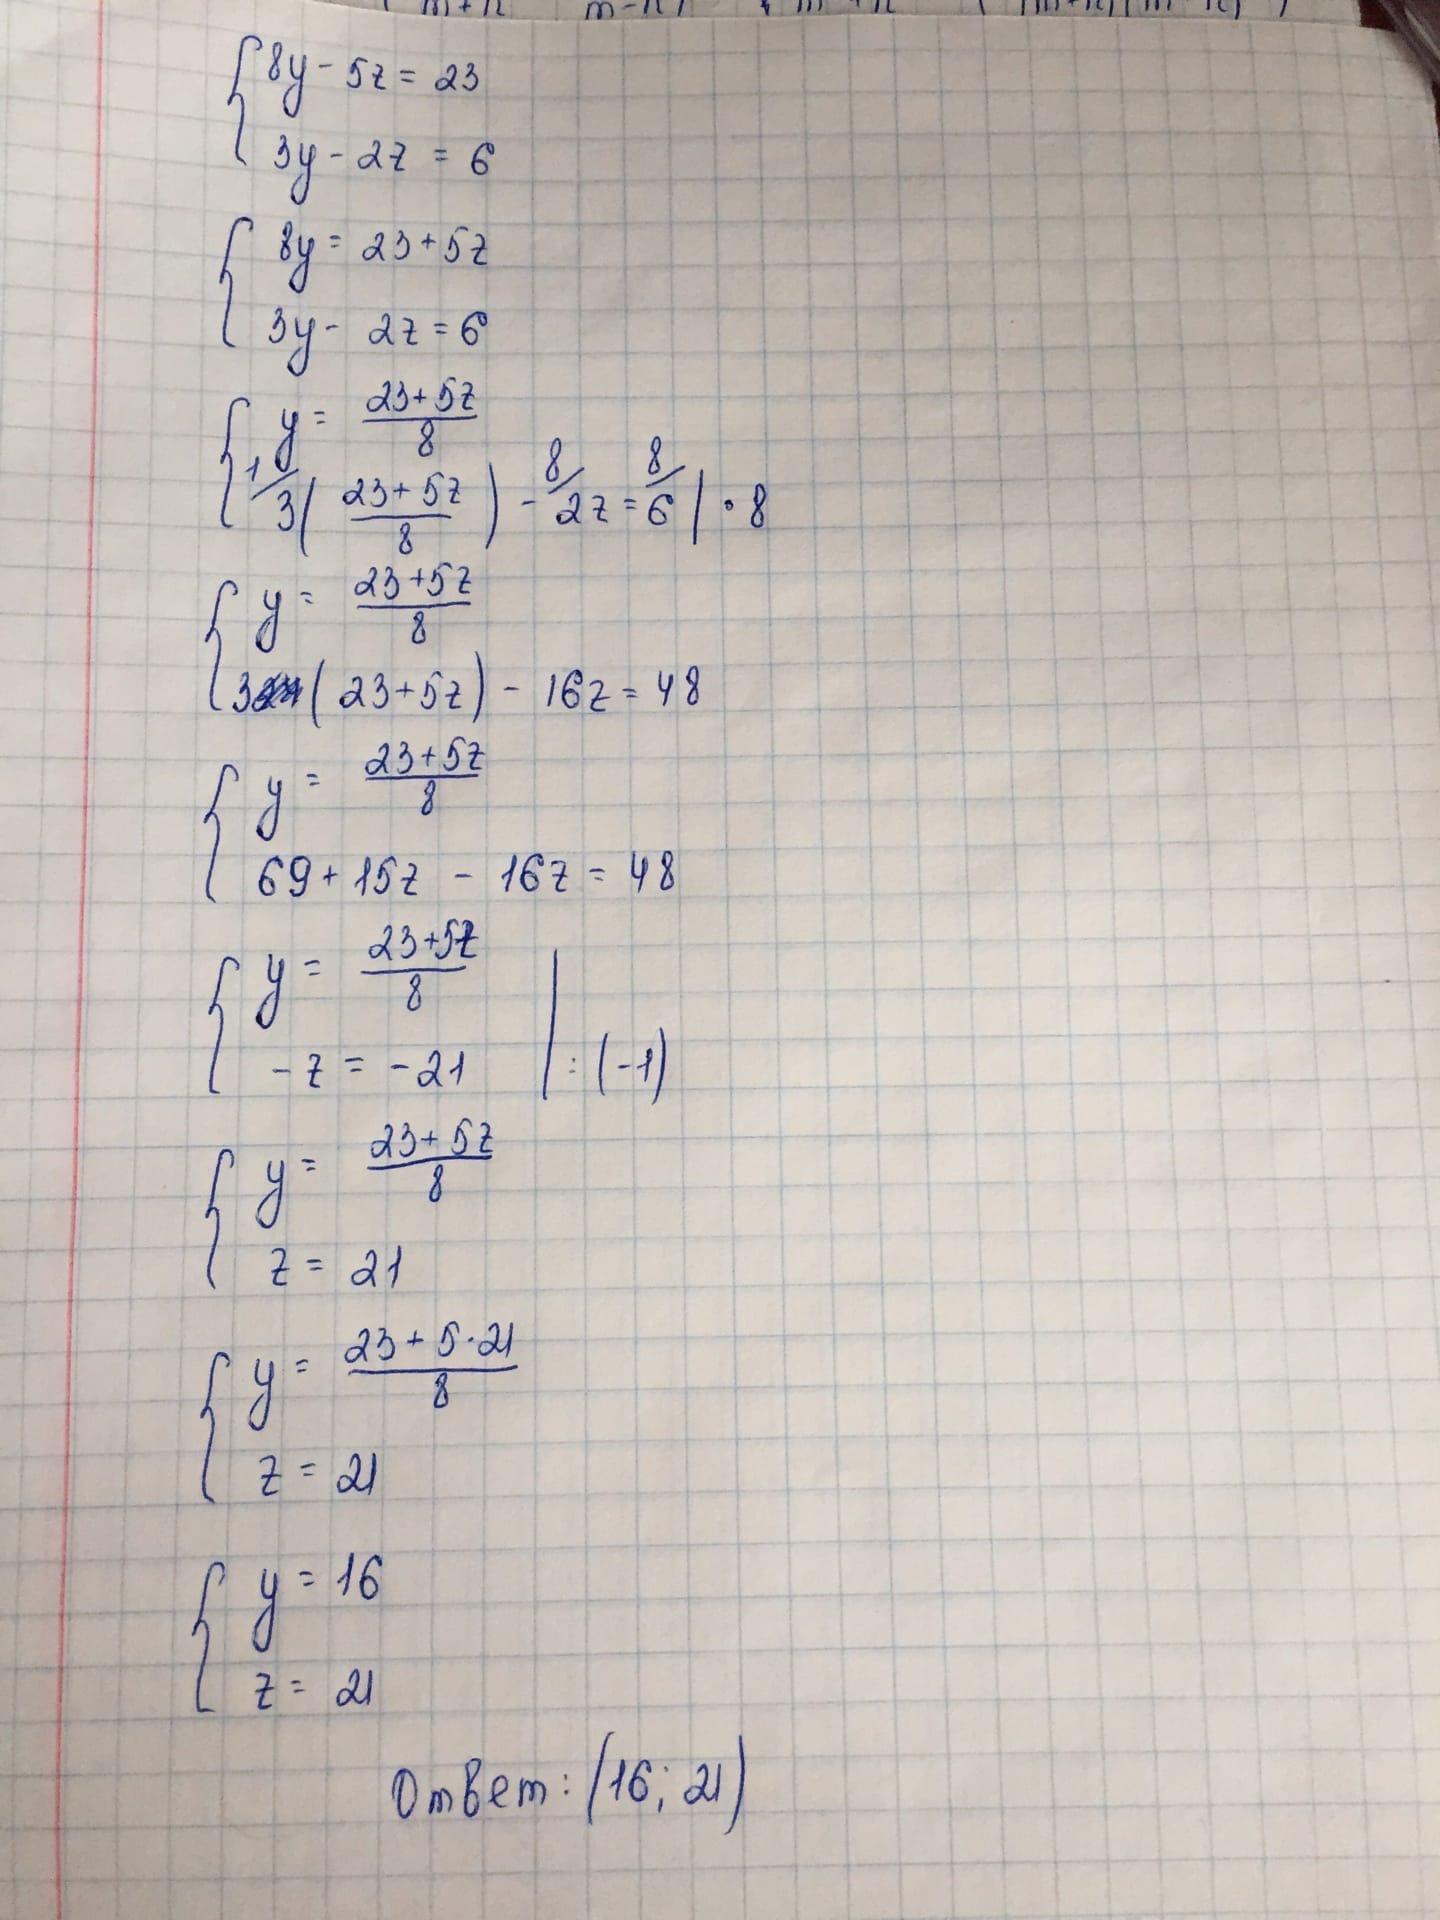 8y - 5z = 23
3y - 2z = 6
8y = 23 + 5z
3y - 2z = 6
y = (23+5z)/8
1/ 3( (23+5z)/8 ) - 8/ 2z = 8/ 6 | • 8
y = (23+5z)/8
3( 23+5z) - 16z = 48
y = (23+5z)/8
69 + 15z - 16z = 48
y = (23+5z)/8
-z = -21 | : (-1)
y = (23+5z)/8
z = 21
y = (23 + 5·21)/8
z = 21
y = 16
z = 21
Ответ: (16; 21)